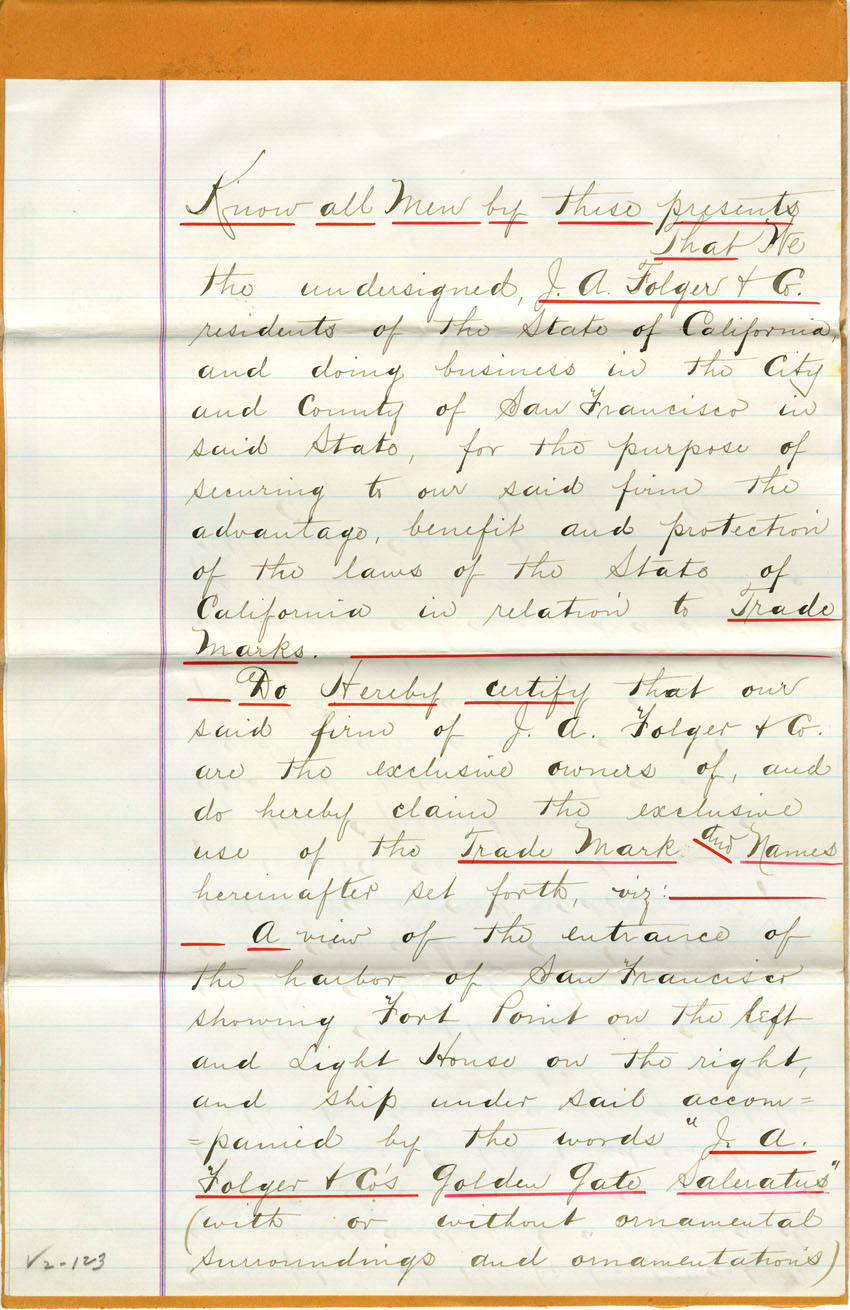 Know all Men by these presents
That We
the undersigned, J. A. Folger & Co.
residents of the State of California,
and doing business in the City
and County of San Francisco in
said State, for the purpose of
securing to our said firm the
advantage, benefit and protection
of the laws of the State of
California in relation to Trade
Marks.
Do Hereby certify that our
said firm of J. A. Folger & Co.
are the exclusive owners of, and
do hereby claim the exclusive
use of the Trade Mark and Names
hereinafter set forth, viz:
A view of the entrance of
the harbor of San Francisco
showing Fort Point on the left
and Light House on the right,
and ship under sail accom=
=panied by the words "J. A.
Folger & Co's Golden Gate Saleratus"
(with or without ornamental
surroundings and ornamentations)
V2-123